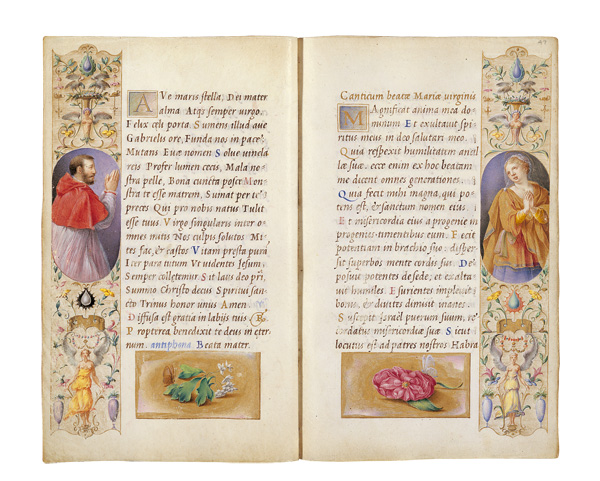 AVe maris stella, Dei mater
alma Atqs semper virgo.
Felix cœli porta. Sumens illud aue
Gabrielis ore, Funda nos in pace,
Mutans Euæ nomen Solue uincla
reis Profer lumen cecis, Mala no
stra pelle, Bona cuncta posce Mon
stra te esse matrem, Sumat per te
preces Qui pro nobis natus Tulit
esse tuus. Virgo singularis inter o
mnes mitis Nos culpis solutos Mi
tes fac, & castos Vitam præsta purā
Iter para tutum Ut uidentes Iesum,
Semper colletemur. Sit laus deo pri,
Summo Christo decus Spiritui san
cto Trinus honor unus Amen.
Diffusa est gratia in labijs tuis R
Propterea benedixit te deus in eter
num. antiphona. Beata mater.
Canticum beatæ Mariæ virginis
MAgnificat anima mea do
minum Et exultauit spi
ritus meus in deo salutari meo.
Quia respexit humilitatem ancil
læ suæ: ecce enim ex hoc beatam
me dicent omnes generationes.
Quia fecit mihi magna, qui po
tens est, & sanctum nomen eius.
Et misericordia eius a progenie in
progenies timentibus eum. Fecit
potentiam in brachio suo: disper
sit superbos mente cordis sui. De
posuit potentes de sede, et exalta
uit humiles. Esurientes impleuit
bonis, & diuites dimisit inanes.
Suscepit Israël puerum suum, re
cordatus misericordiæ suæ Sicut
locutus est ad patres nostros Habra